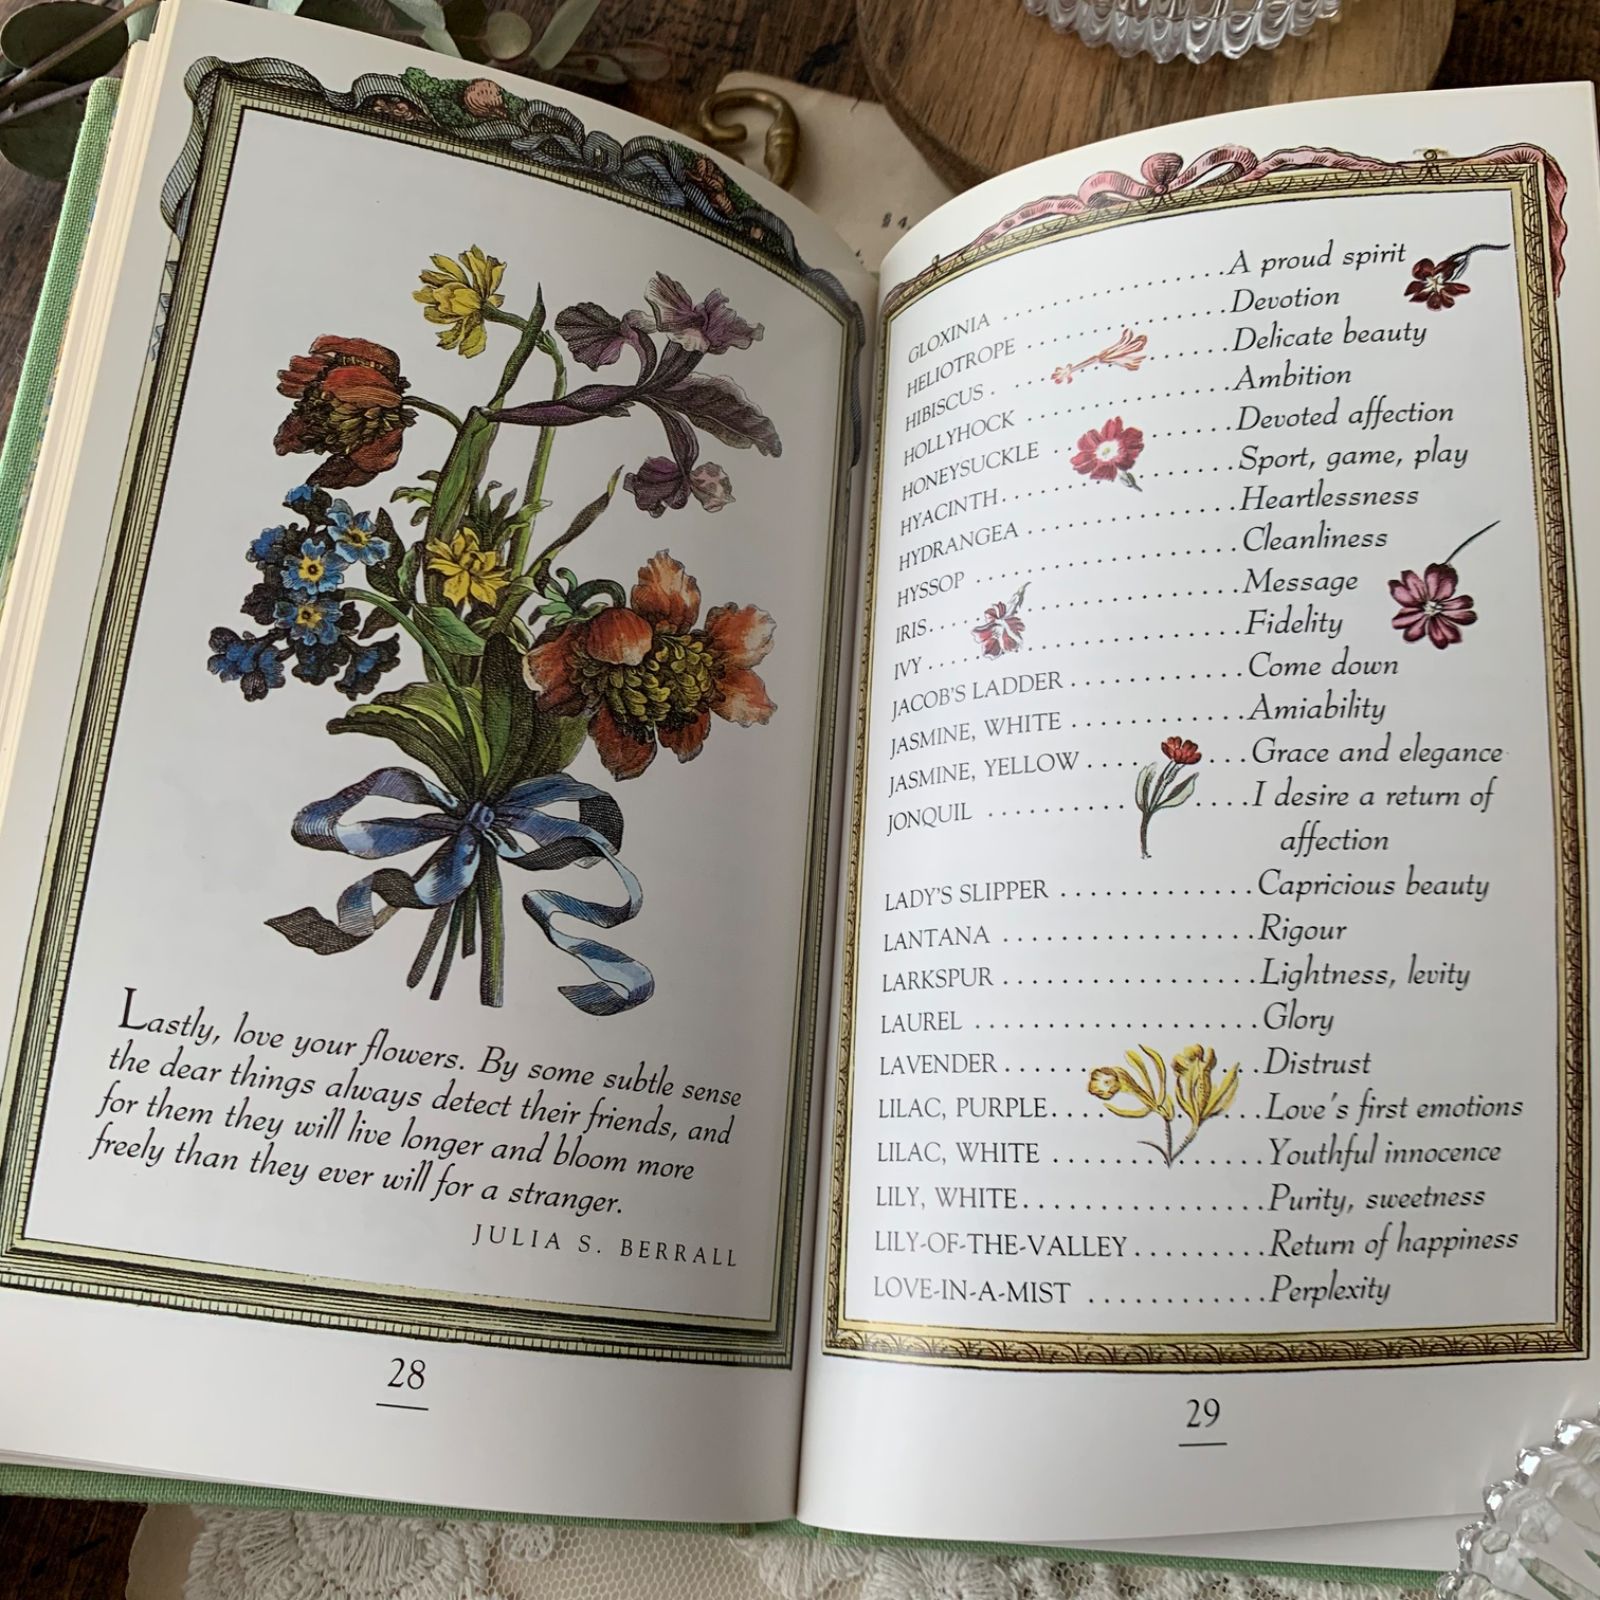 Lastly, love your flowers. By some subtle sense
the dear things always detect their friends, and
for them they will live longer and bloom more
freely than they ever will for a stranger.
JULIA S. BERRALL
28
GLOXINIA ............A proud spirit
HELIOTROPE ............Devotion
HIBISCUS ............Delicate beauty
HOLLYHOCK ............Ambition
HONEYSUCKLE ............Devoted affection
HYACINTH............Sport, game, play
HYDRANGEA ............Heartlessness
HYSSOP ............Cleanliness
IRIS............Message
IVY ............Fidelity
JACOB'S LADDER ............Come down
JASMINE, WHITE ............Amiability
JASMINE, YELLOW ............Grace and elegance
JONQUIL ............I desire a return of
affection
LADY'S SLIPPER ............Capricious beauty
LANTANA ............Rigour
LARKSPUR ............Lightness, levity
LAUREL ............Glory
LAVENDER............Distrust
LILAC, PURPLE............Love's first emotions
LILAC, WHITE ............Youthful innocence
LILY, WHITE............Purity, sweetness
LILY-OF-THE-VALLEY.........Return of happiness
LOVE-IN-A-MIST ............Perplexity
29